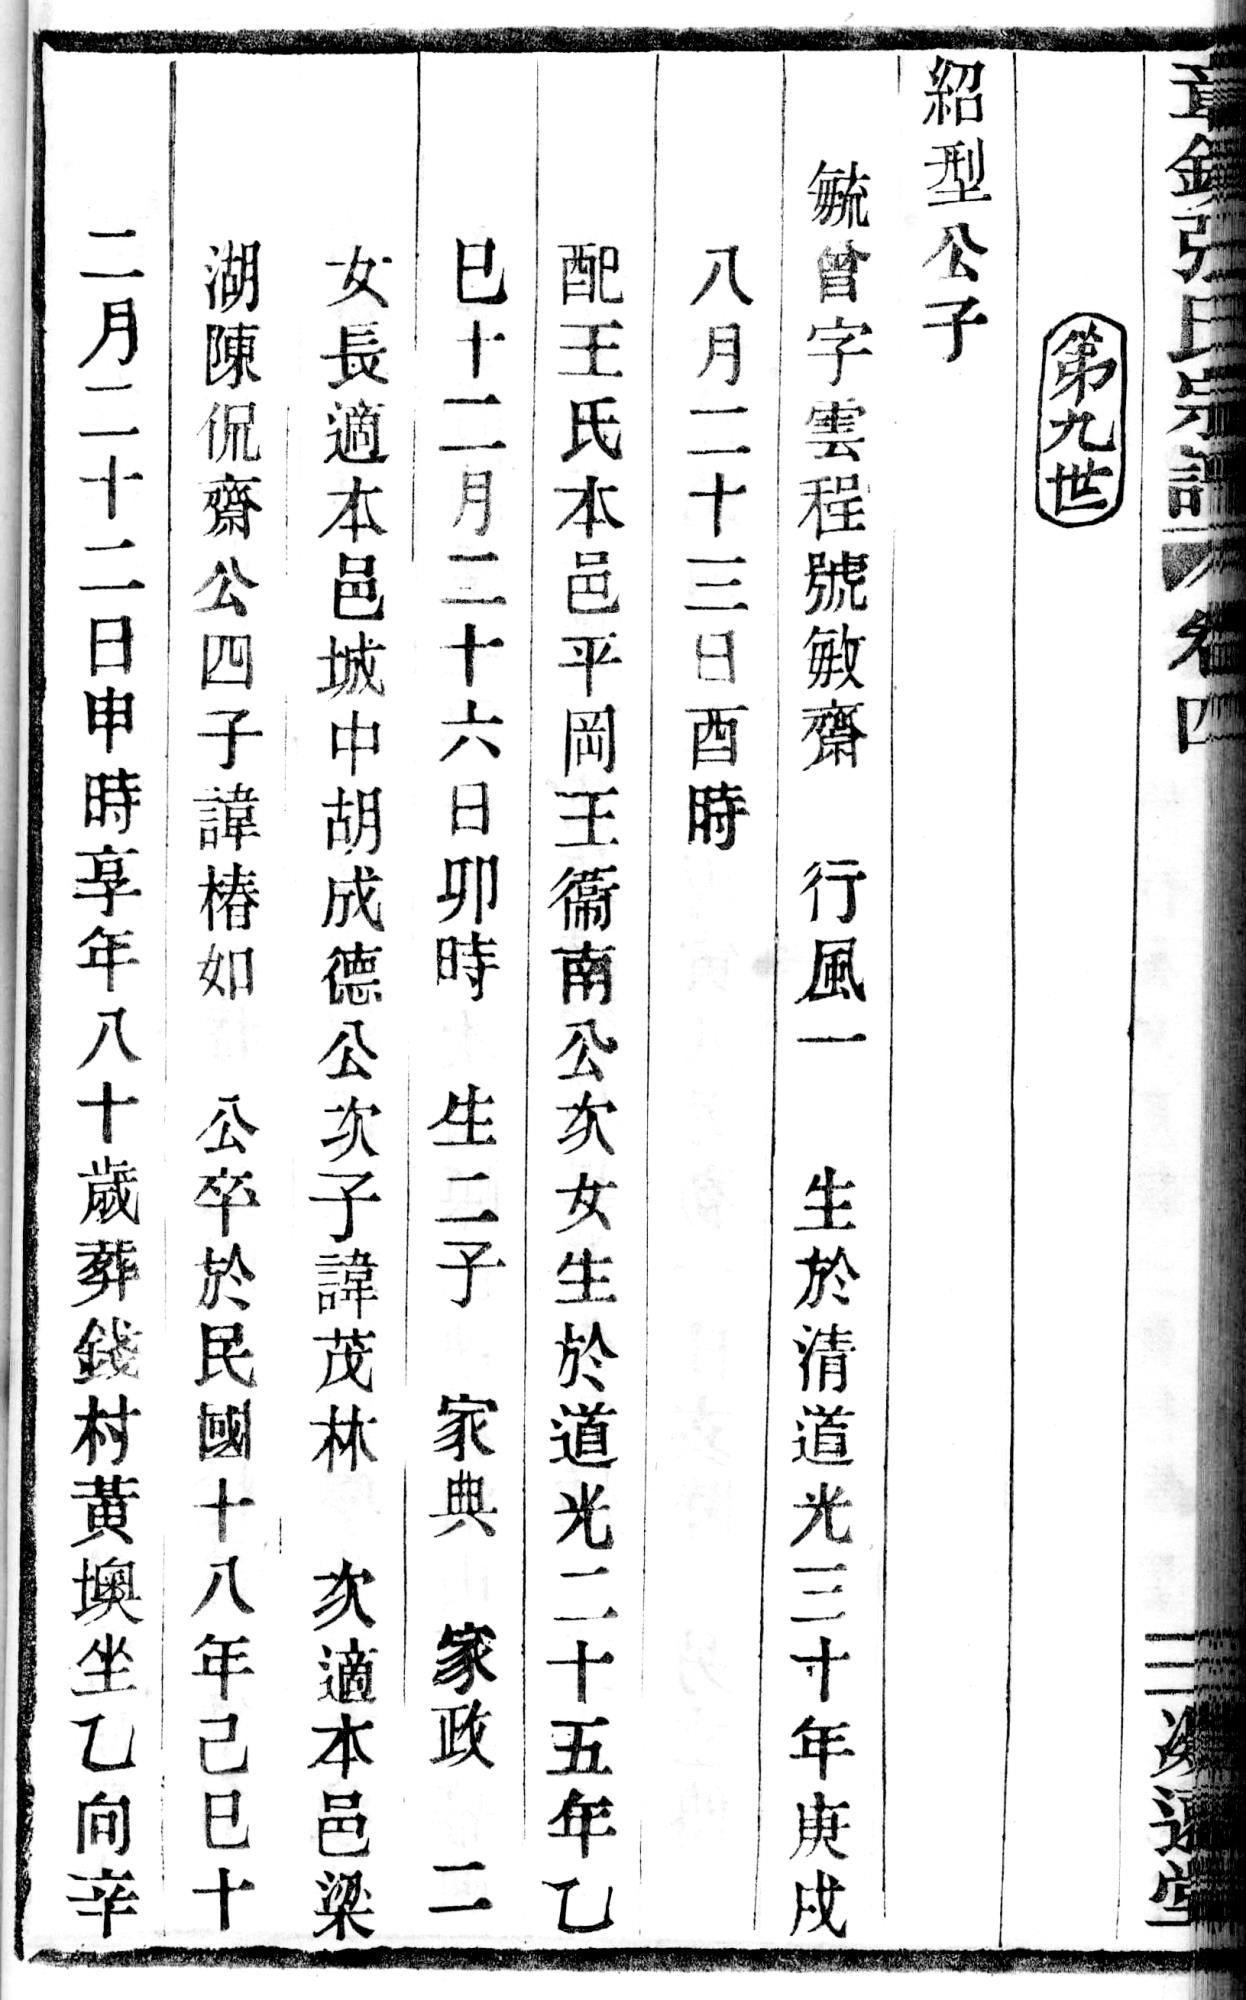 張氏宗譜 卷四 二 遠堂
第九世
紹型公子
毓曾字雲程號敏齋 行風一 生於清道光三十年庚戌
八月二十三日酉時
配王氏本邑平岡王衞南公次女生於道光二十五年乙
巳十二月二十六日卯時 生二子 家典 家政 二
女長適本邑城中胡成德公次子諱茂林 次適本邑梁
湖陳侃齋公四子諱椿如 公卒於民國十八年己巳十
二月二十二日申時享年八十歲葬錢村黃墺坐乙向辛